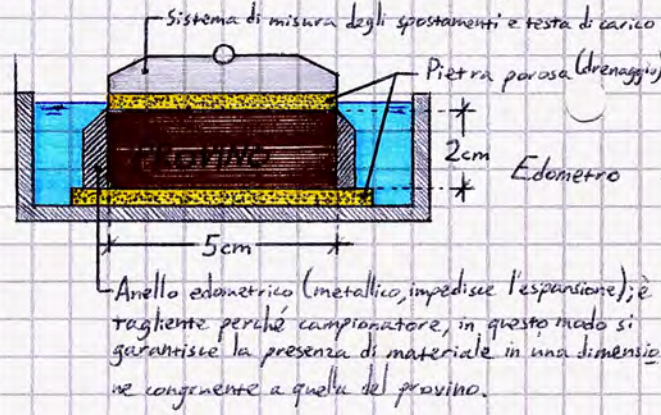 Sistema di misura degli spostamenti e testa di carico
Pietra porosa (drenaggio)
PROVINO
2cm
Edometro
5cm
Anello edometrico (metallico, impedisce l'espansione); è
tagliente perché campionatore, in questo modo si
garantisce la presenza di materiale in una dimensio
ne congruente a quella del provino.